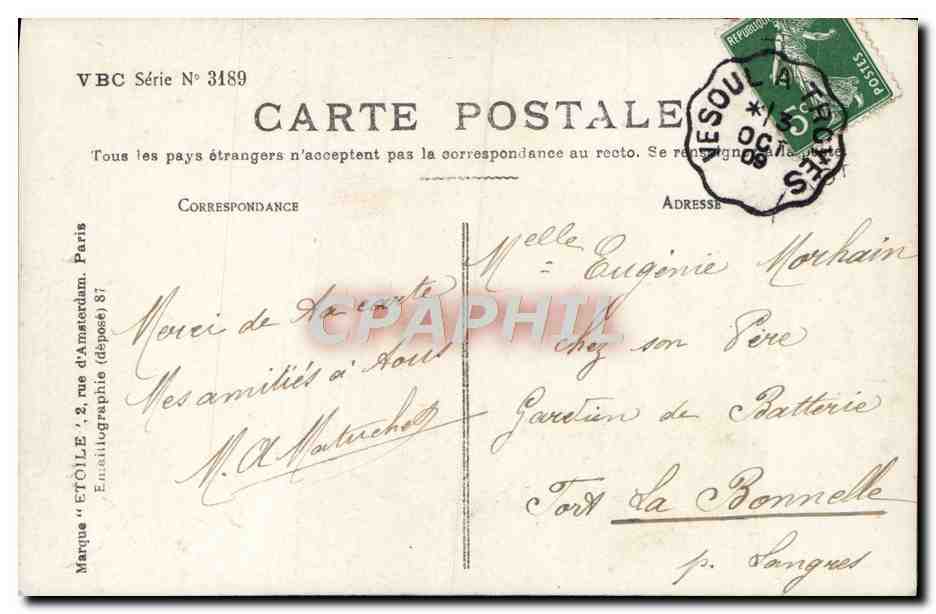 VBC Série N° 3189
CARTE POSTALE
Tous les pays étrangers n'acceptent pas la correspondance au recto. Se renseigner à la poste
CORRESPONDANCE
ADRESSE
REPUBLIQUE
POSTES
5
VESOUL A TROYES
*13
OCT
09
Marque "ETOILE", 2, rue d'Amsterdam. Paris
Emaillographie (déposé) 87
Merci de ta carte
Mes amitiés à tous
M. A
Melle Eugénie Morhain
chez son Père
Gardien de Batterie
Fort La Bonnelle
p. Langres
CPAPHIL